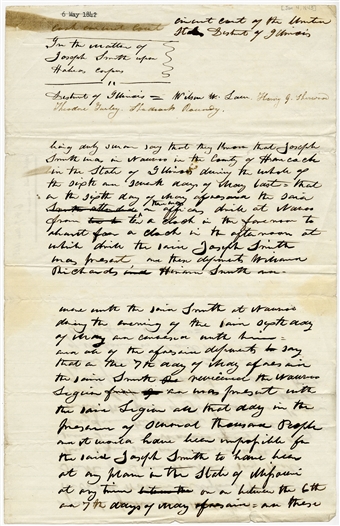 6 May 1842
circuit court of the United
States District of Illinois
In the matter of
Joseph Smith upon
Habeas corpus
District of Illinois = Wilson W. Law Henry G. Sherwood
Theodore Turley, Shadrach Roundy
being duly sworn say that they know that Joseph
Smith was in Nauvoo in the County of Hancock
in the State of Illinois during the whole of
the sixth and seventh days of May last = that
on the sixth day of May aforesaid the said
Smith attended an officers drill at Nauvoo
from ten o clock in the forenoon to
about four o clock in the afternoon at
which drill the said Joseph Smith
was present and these deponents William
Richards and Hiram Smith
were with the said Smith at Nauvoo
during the evening of the said sixth day
of May and conversed with him =
and all of the aforesaid deponents say
that on the 7th day of May aforesaid
the said Smith reviewed the Nauvoo
Legion and was present with
the said Legion all that day in the
presence of several thousand People
and it would have been impossible for
the said Joseph Smith to have been
at any place in the State of Missouri
at any time on or between the 6th
and 7th days of May aforesaid = and these